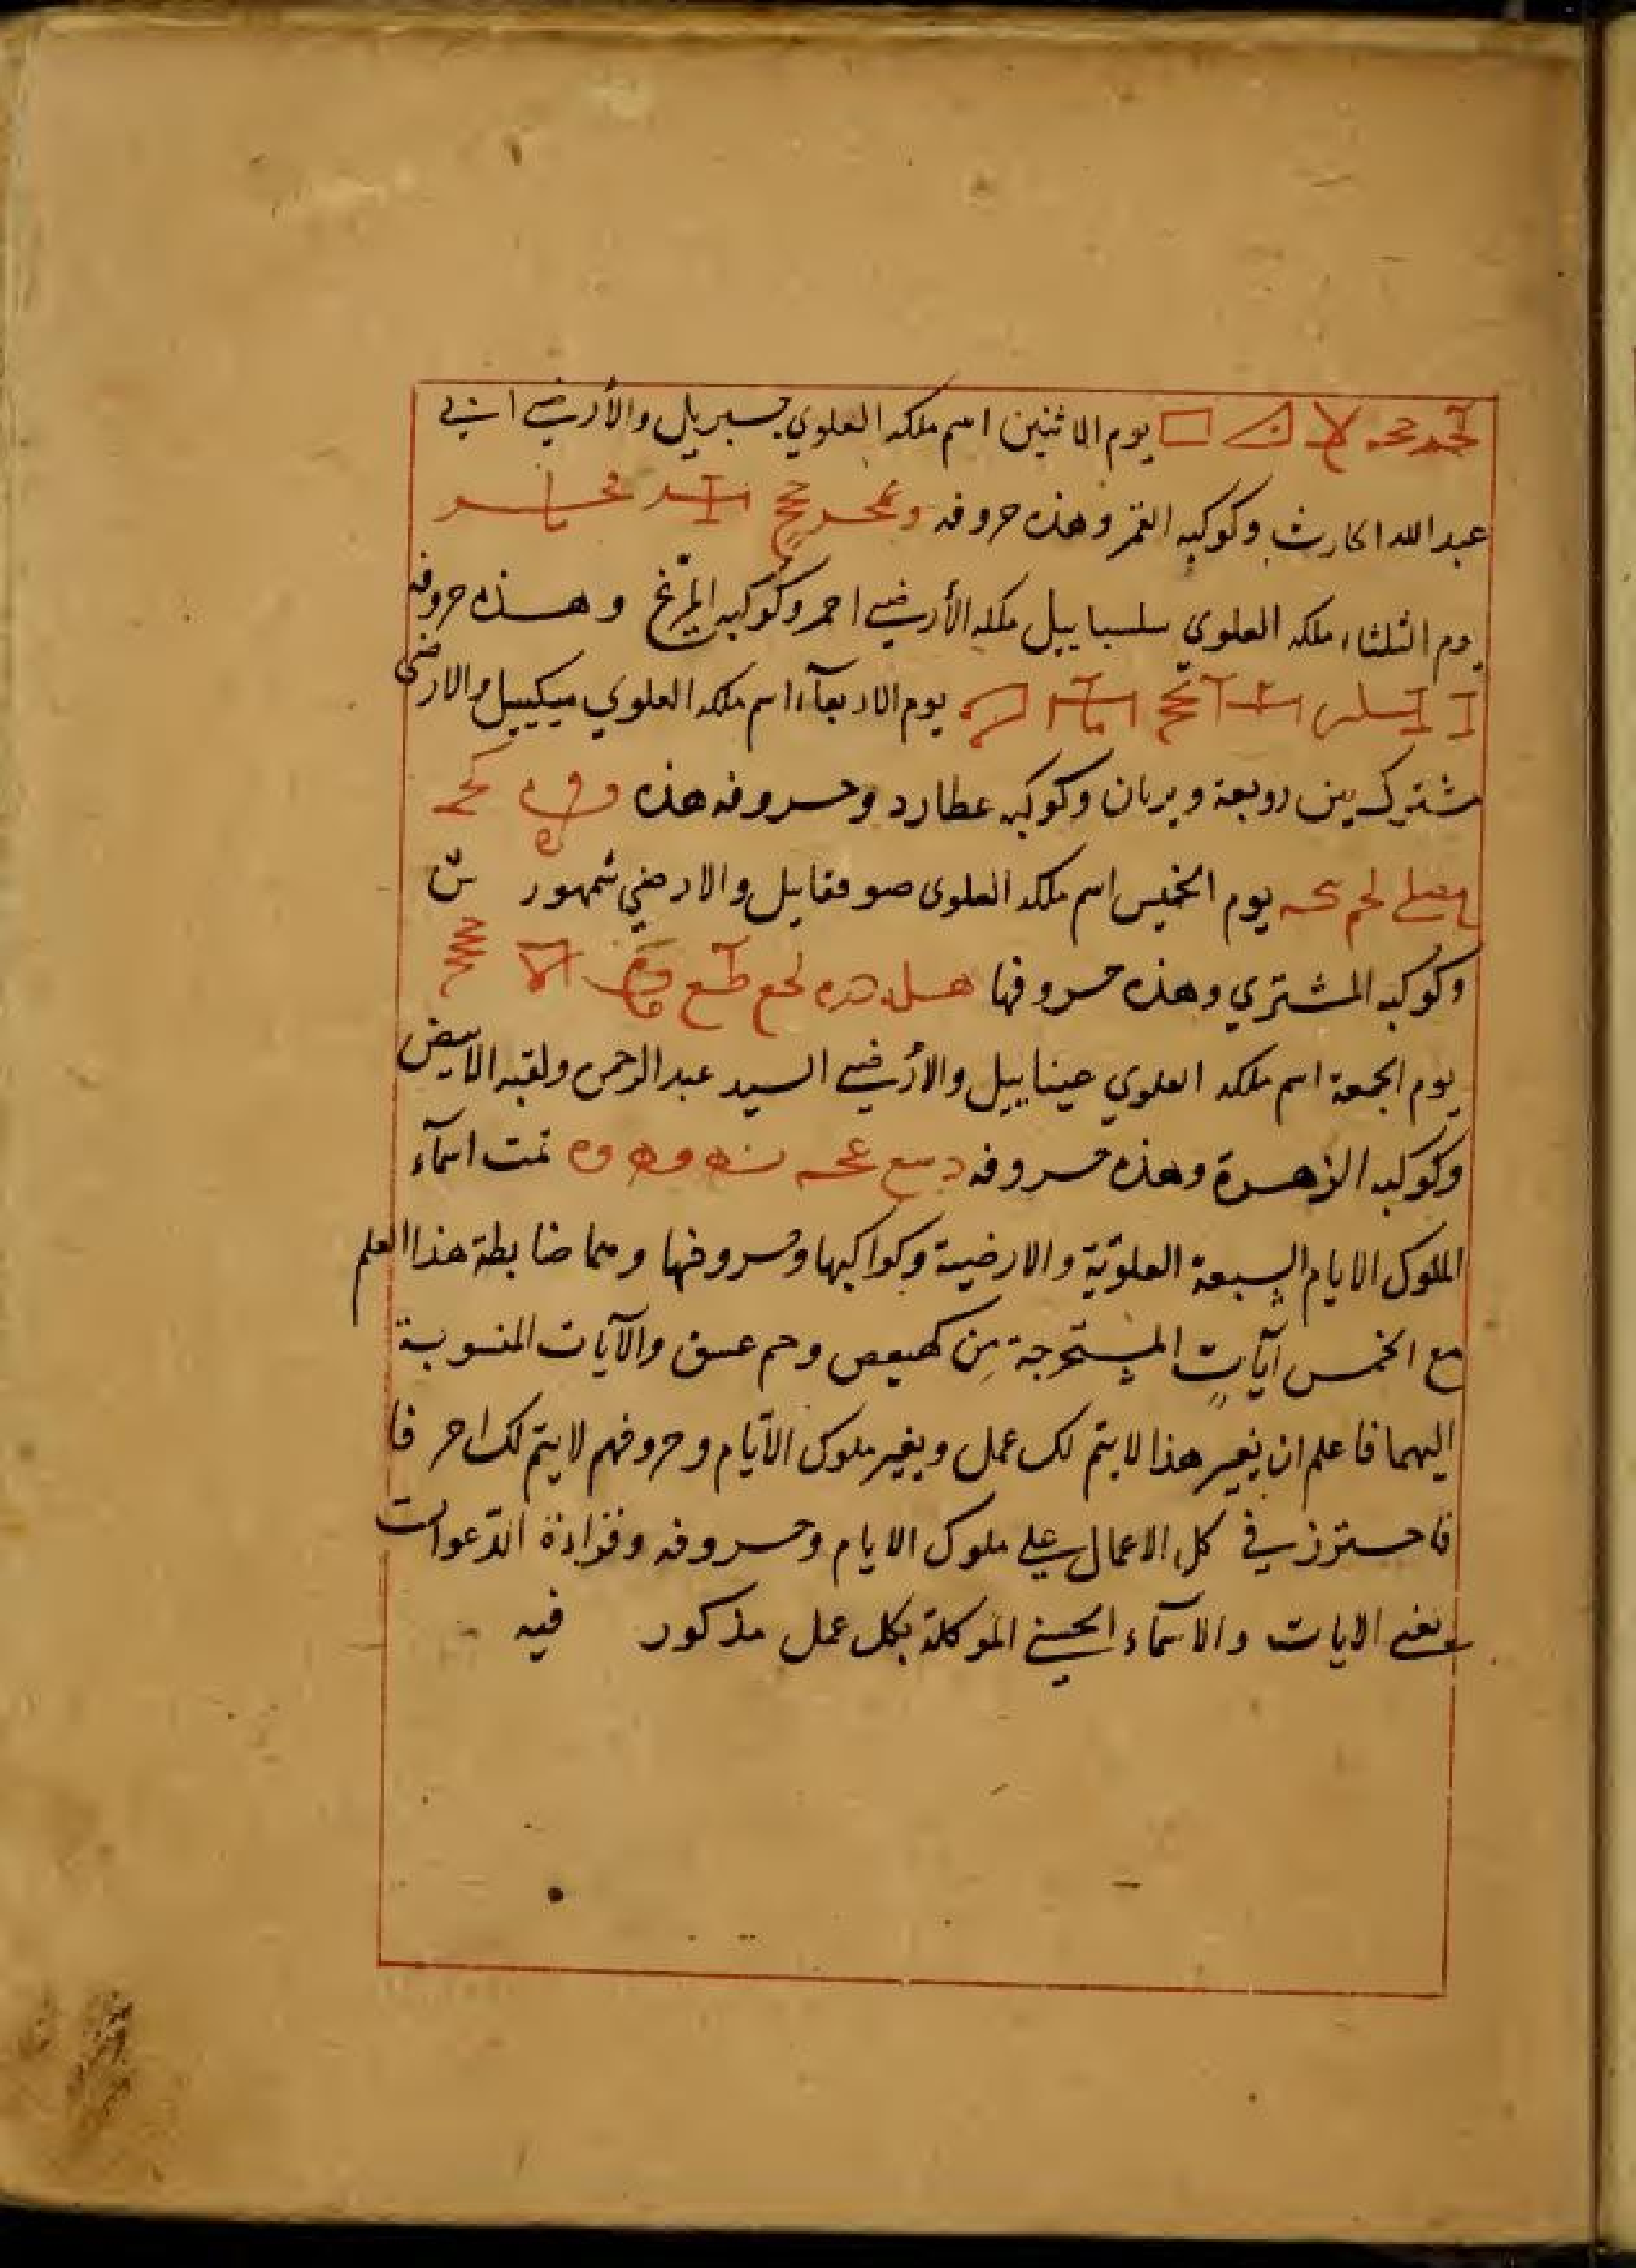 يوم الاثنين اسم ملكه العلوي جبريل والأرضي ابي
عبد الله الحارث وكوكبه القمر وهذه حروفه
يوم الثلثاء ملكه العلوي سلسباييل ملكه الأرضي احمر وكوكبه المرّيخ وهذه حروفه
يوم الاربعآء اسم ملكه العلوي ميكييل والارضى
مشترك بين زوبعة وبرىان وكوكبه عطارد وحروفه هذه
يوم الخميس اسم ملكه العلوى صوفقاييل والارضي شمهور ش
وكوكبه المشتري وهذه حروفها
يوم الجمعة اسم ملكه العلوي عيناييل والأرضي السيد عبد الرحمن ولقبه الابيض
وكوكبه الزهرة وهذه حروفه تمت اسمآء
الملوك الايام السبعة العلويّة والارضية وكواكبها وحروفها وهما ضابطة هذا العلم
مع الخمس آيات المستخرجة مِن كهيعص وحم عسق والآيات المنسوبة
اليهما فاعلم ان بغير هذا لا يتم لك عمل وبغير ملوك الأيّام وحروفهم لا يتم لك احر فا
فاحترز في كل الاعمال علي ملوك الايام وحروفه وقراءة الدّعوات
وبغى الايات والاسمآء الحسنى الموكلة بكل عمل مذكور فيه